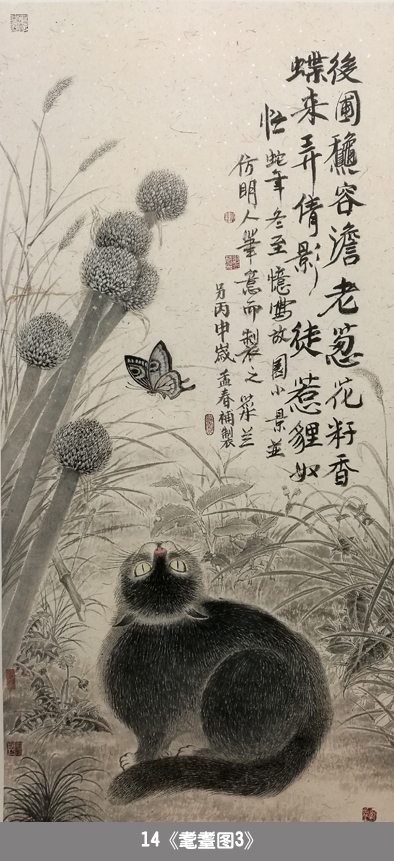 後圃龝容澹老葱花籽香
蝶来弄倩影徒惹貍奴
忙 蛇年冬至憶寫故園小景並
仿明人筆意而製之
丙申嵗孟春補製
14《耄耋图3》